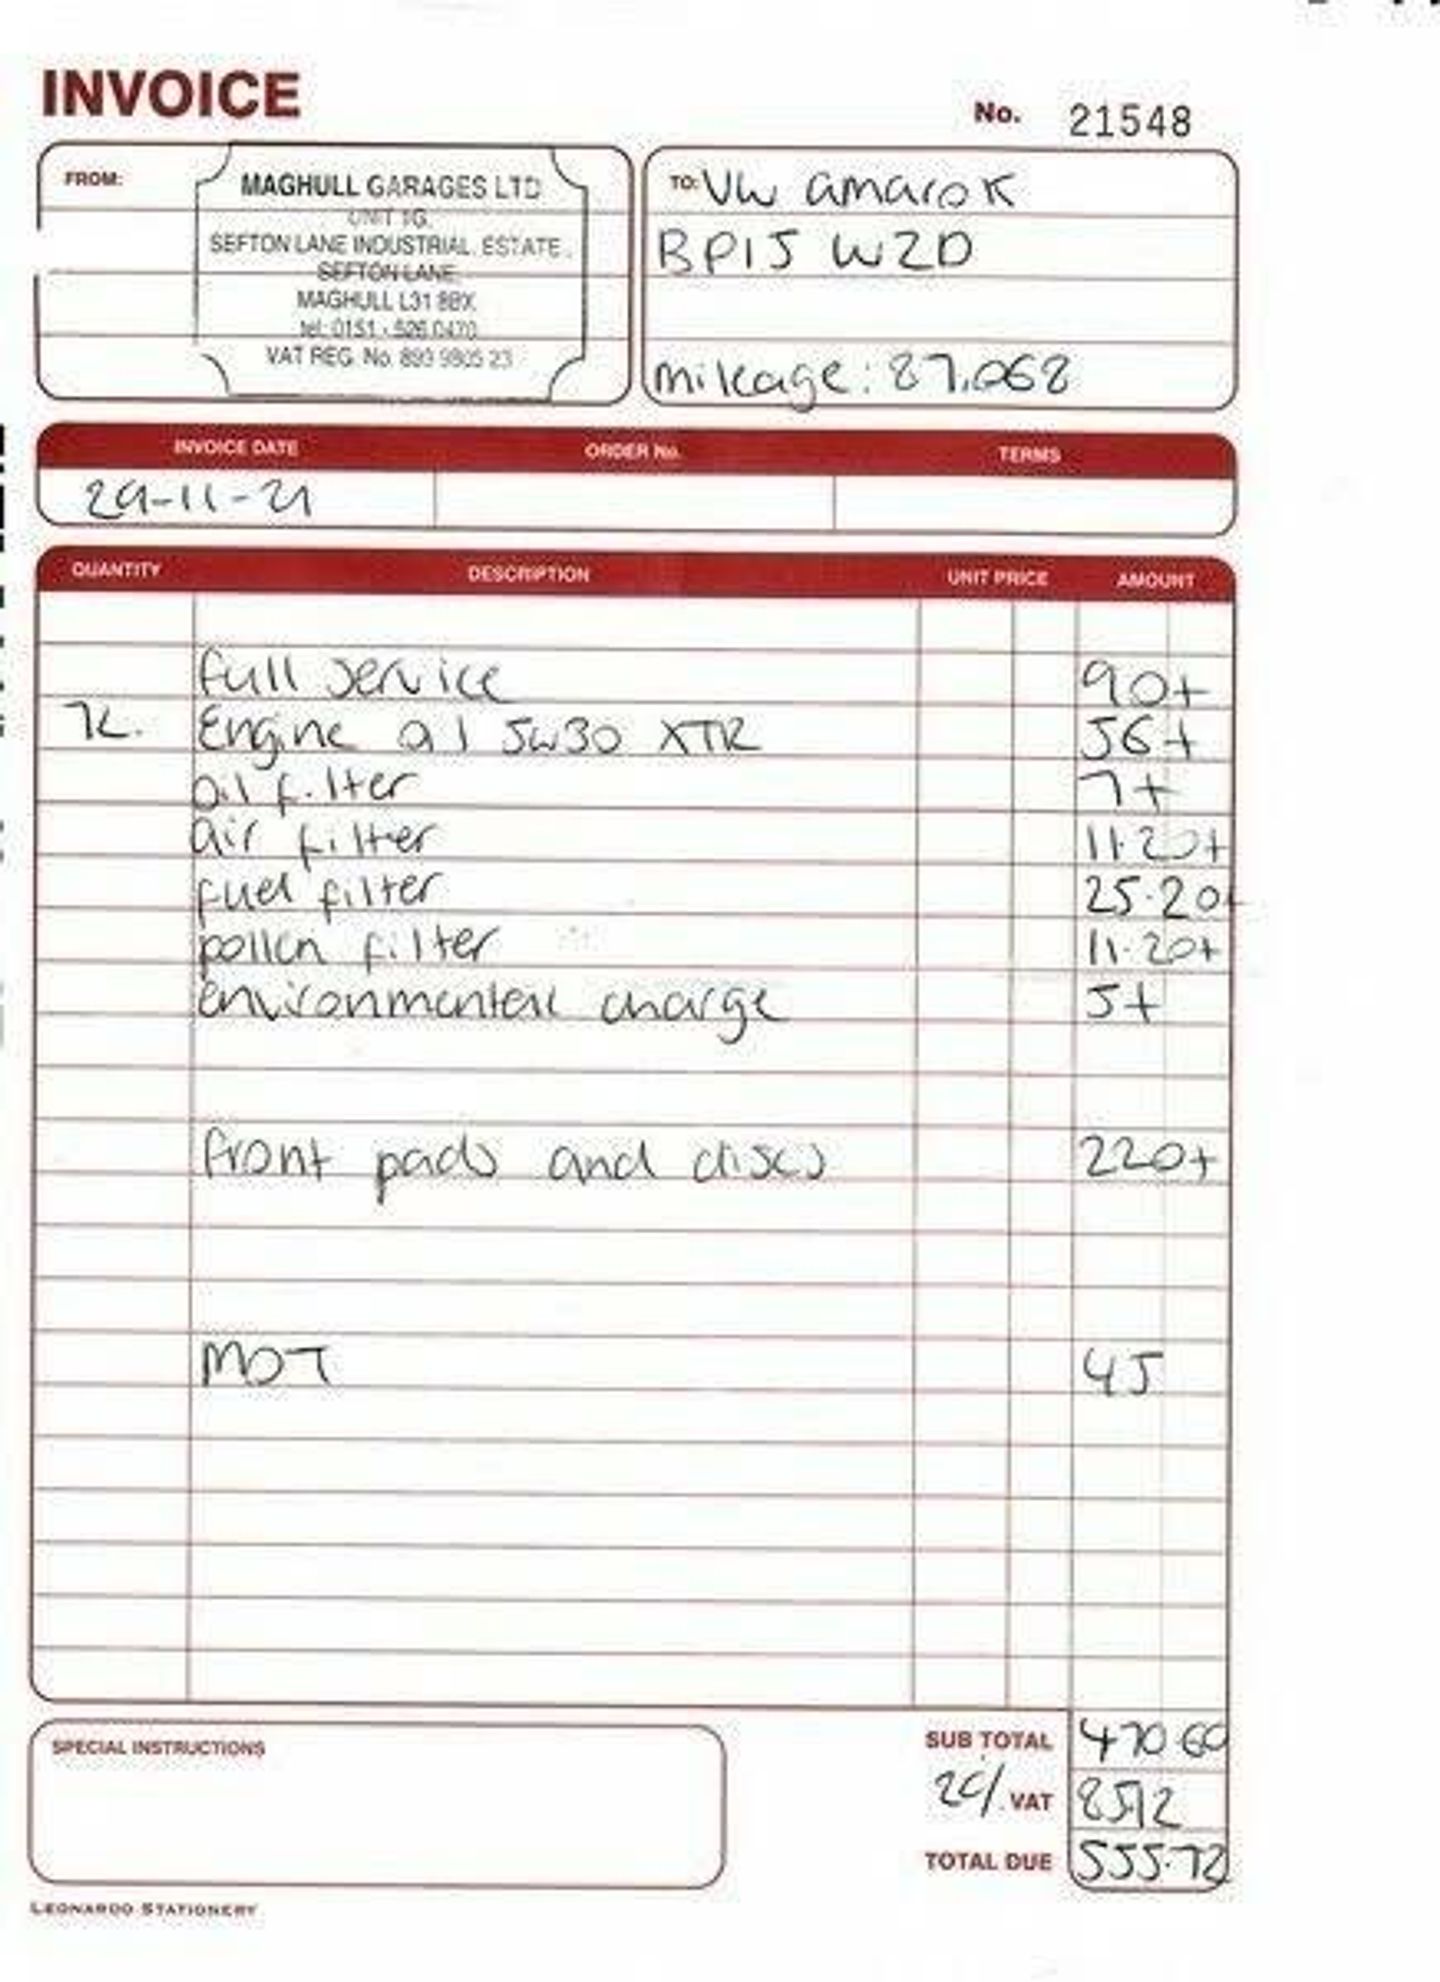 INVOICE
No. 21548
FROM:
MAGHULL GARAGES LTD
UNIT 1G,
SEFTON LANE INDUSTRIAL ESTATE,
SEFTON LANE,
MAGHULL L31 8BX
tel: 0151 - 526 0470
VAT REG. No. 893 9805 23
TO: VW amarok
BP15 WZD
mileage: 87,068
INVOICE DATE ORDER No. TERMS
29-11-21
QUANTITY DESCRIPTION UNIT PRICE AMOUNT
full service 90+
7L. Engine oil 5w30 XTR 56+
oil filter 7+
air filter 11.20+
fuel filter 25.20+
pollen filter 11.20+
environmental charge 5+
front pads and discs 220+
MOT 45
SPECIAL INSTRUCTIONS
SUB TOTAL 470.60
20% VAT 85.12
TOTAL DUE 555.72
LEONARDO STATIONERY